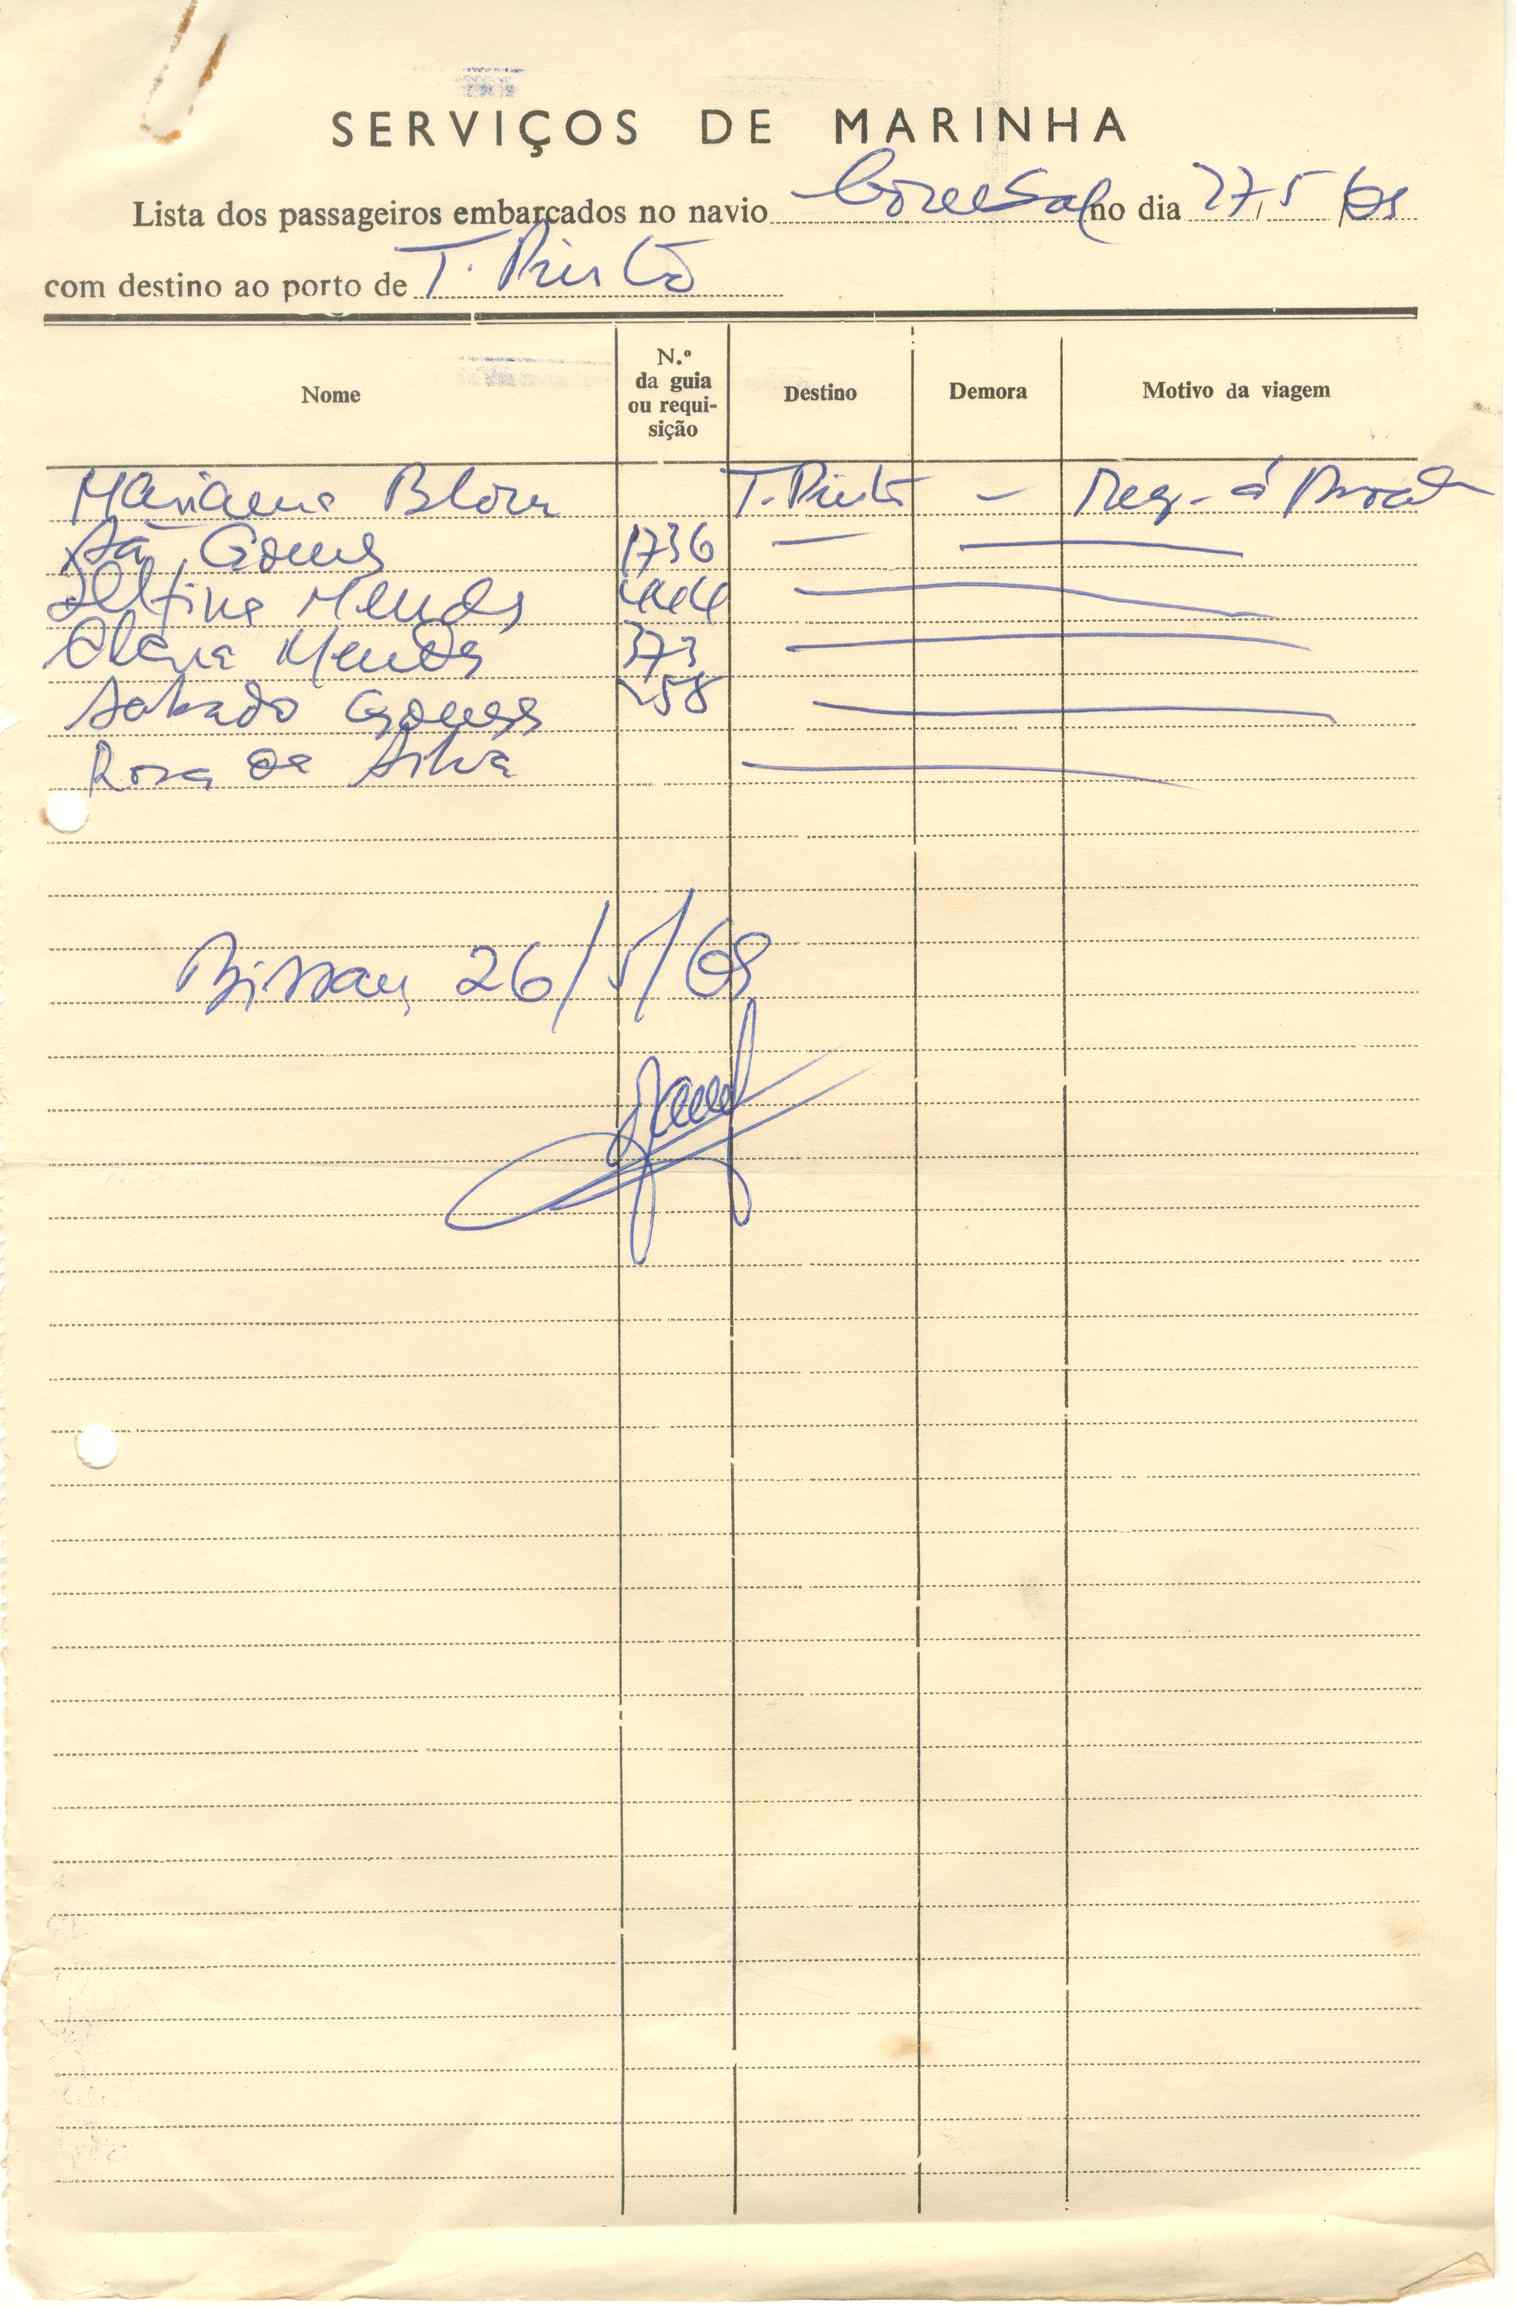 SERVIÇOS DE MARINHA
Lista dos passageiros embarcados no navio Corubal no dia 27,5/69
com destino ao porto de T. Pinto
Nome N.º da guia ou requisição Destino Demora Motivo da viagem
T. Pinto — Reg. á
Sá Gomes 1736 —
Delfina Mendes 444
Mendes 373
Sabado Gomes 258
Rosa da Silva
Bissau, 26/5/69